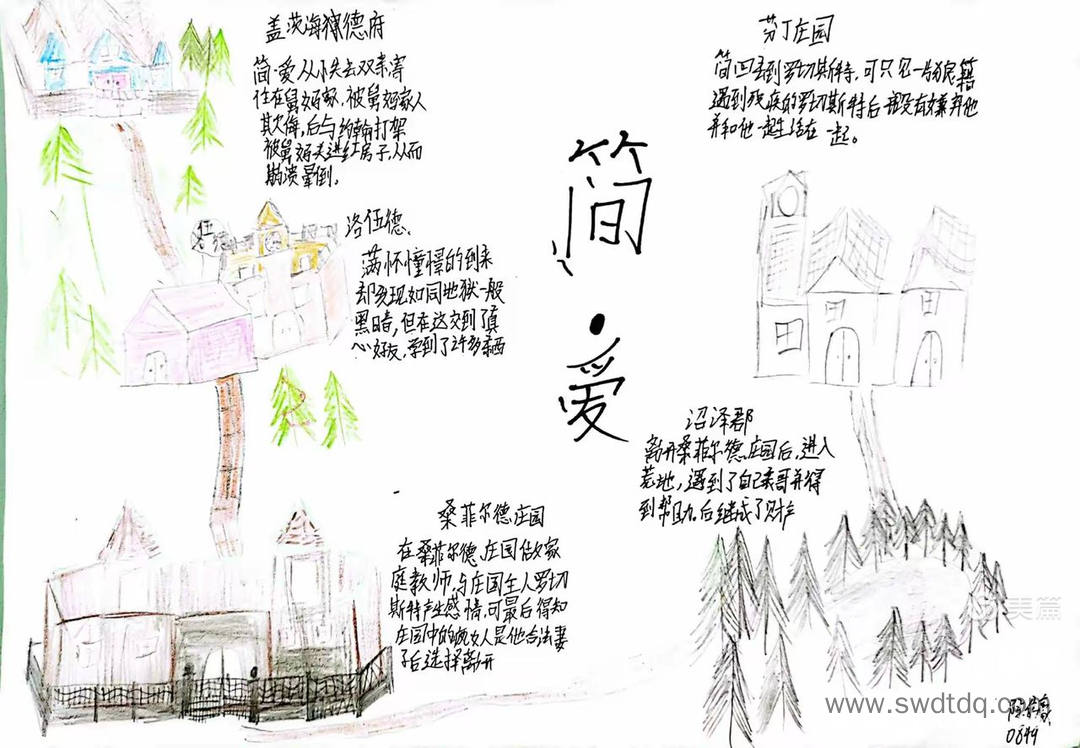 盖茨海德府
简·爱从小失去双亲,寄
住在舅妈家,被舅妈家人
欺侮,后与约翰打架
被舅妈关进红房子,从而
崩溃晕倒。
洛伍德
满怀憧憬的到来
却发现如同地狱一般
黑暗,但在这交到了真
心好友,学到了许多东西
桑菲尔德庄园
在桑菲尔德庄园做家
庭教师,与庄园主人罗切
斯特产生感情,可最后得知
庄园中的疯女人是他合法妻
子后选择离开
简·爱
芬丁庄园
简回去找到罗切斯特,可只见一片狼籍
遇到残疾的罗切斯特后并没有嫌弃他
并和他一起生活在一起。
沼泽郡
离开桑菲尔德庄园后,进入
荒地,遇到了自己表哥并得
到帮助,后继成了财产
美篇
www.swdtdq.c
0849